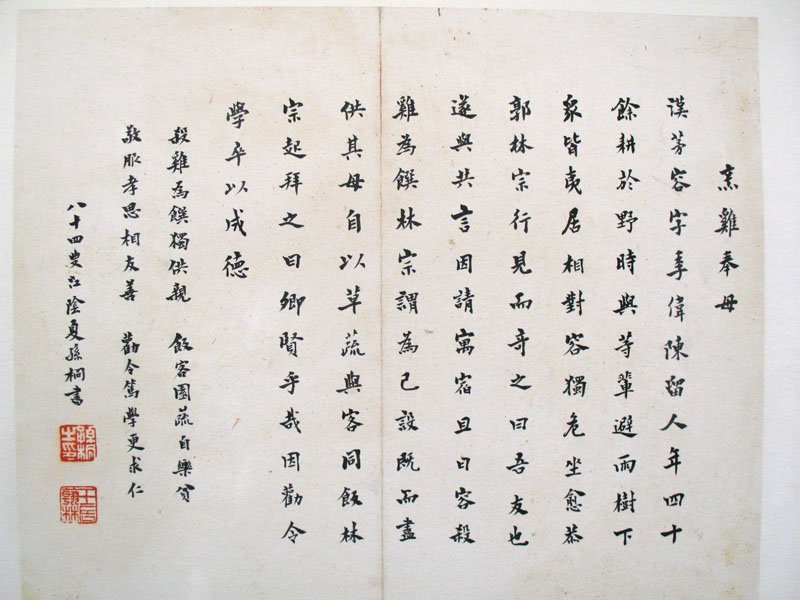 烹雞奉母
漢茅容字季偉陳留人年四十
餘耕於野時與等輩避雨樹下
眾皆夷居相對容獨危坐愈恭
郭林宗行見而奇之曰吾友也
遂與共言因請寓宿旦日容殺
雞為饌林宗謂為己設既而盡
供其母自以草蔬與客同飯林
宗起拜之曰卿賢乎哉因勸令
學卒以成德
殺雞為饌獨供親 飯客園蔬自樂貧
敬服孝思相友善 勸令篤學更求仁
八十四叟江陰夏孫桐書